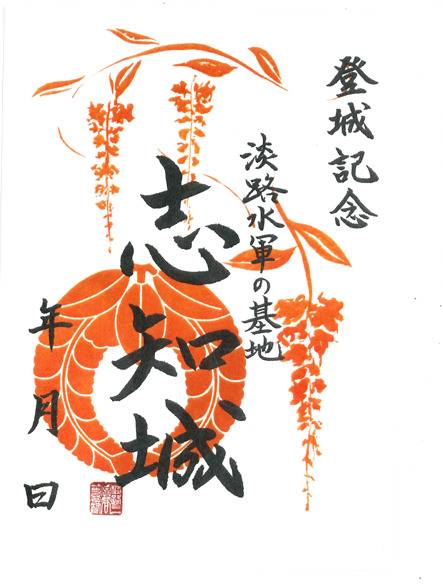 登城記念
淡路水軍の基地
志知城
年月日